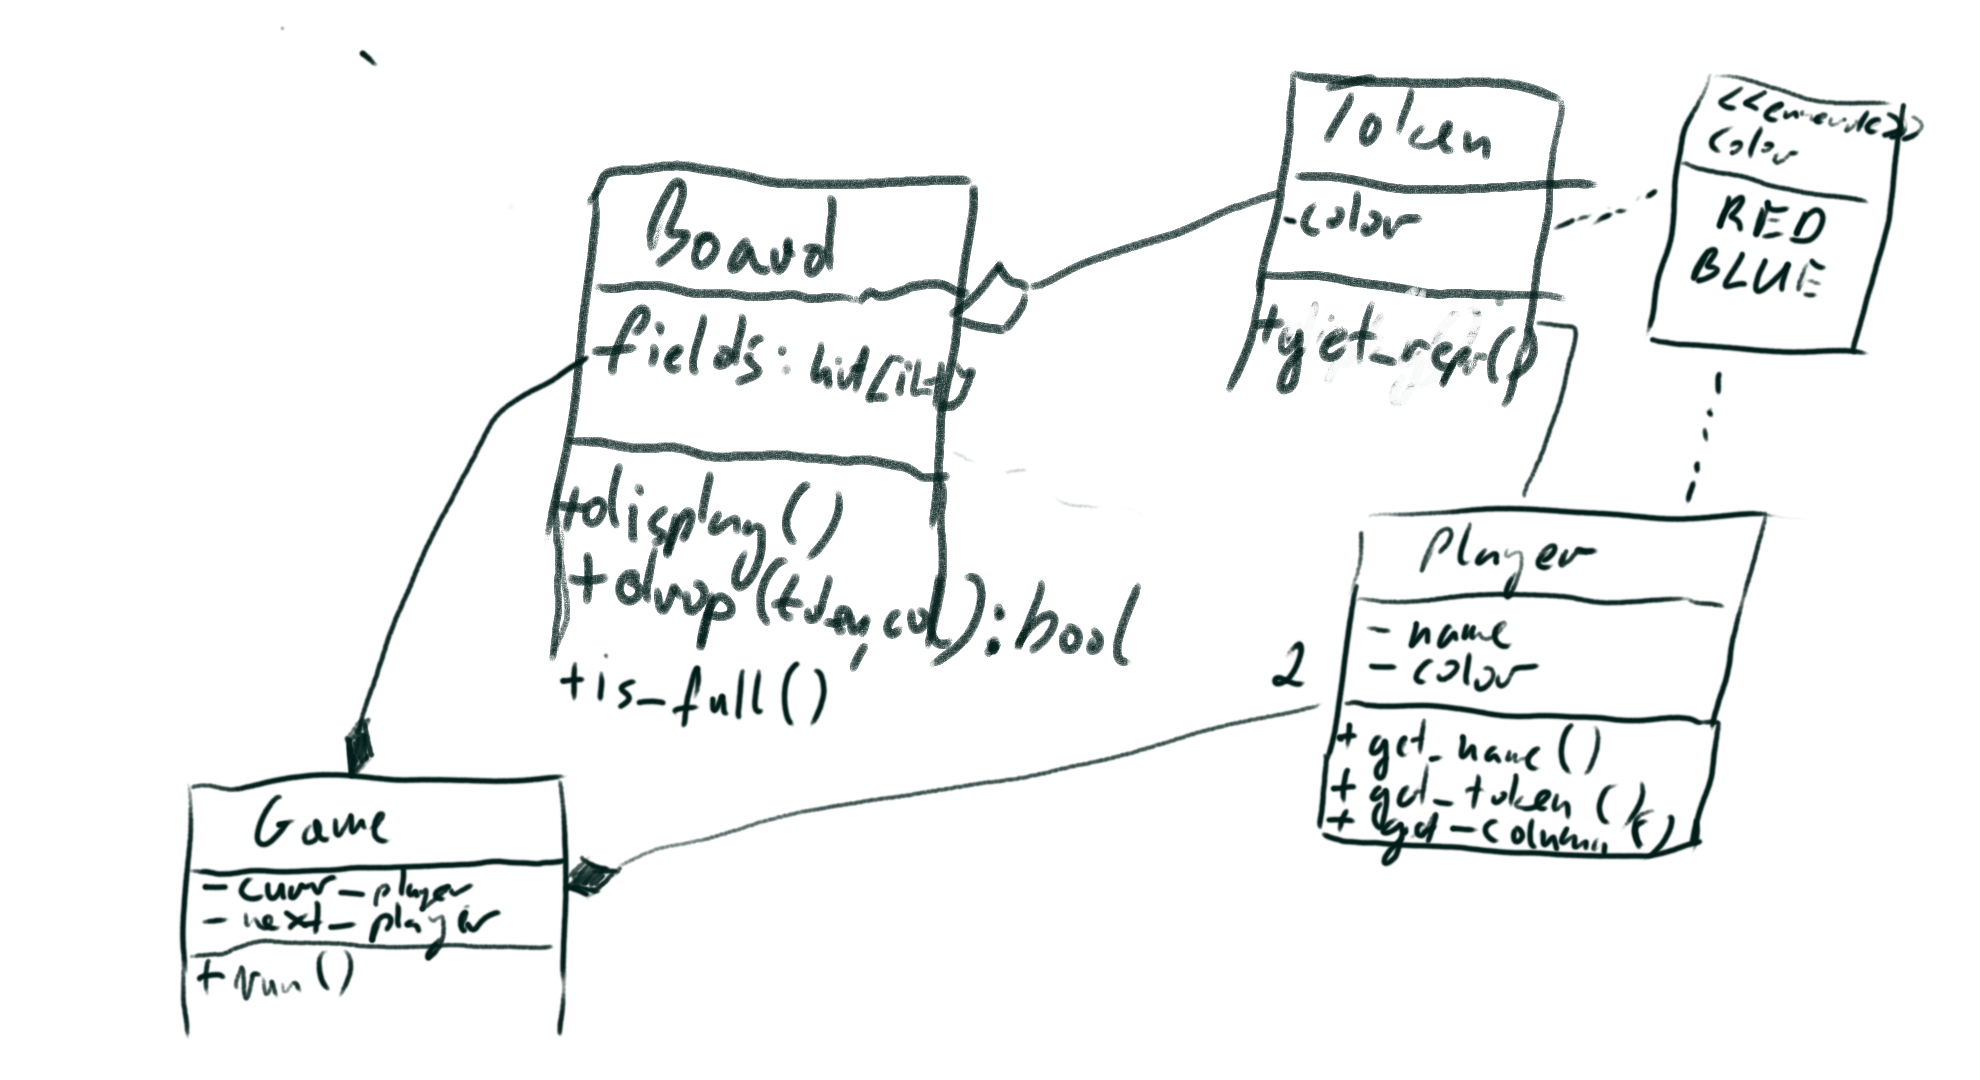 Board
fields:
+display()
+drop(token,col):bool
+is_full()
Token
-color
+get_repr()
Color
RED
BLUE
Player
- name
- color
+ get_name()
+ get_token()
+ get_column()
2
Game
- curr_player
- next_player
+ run()